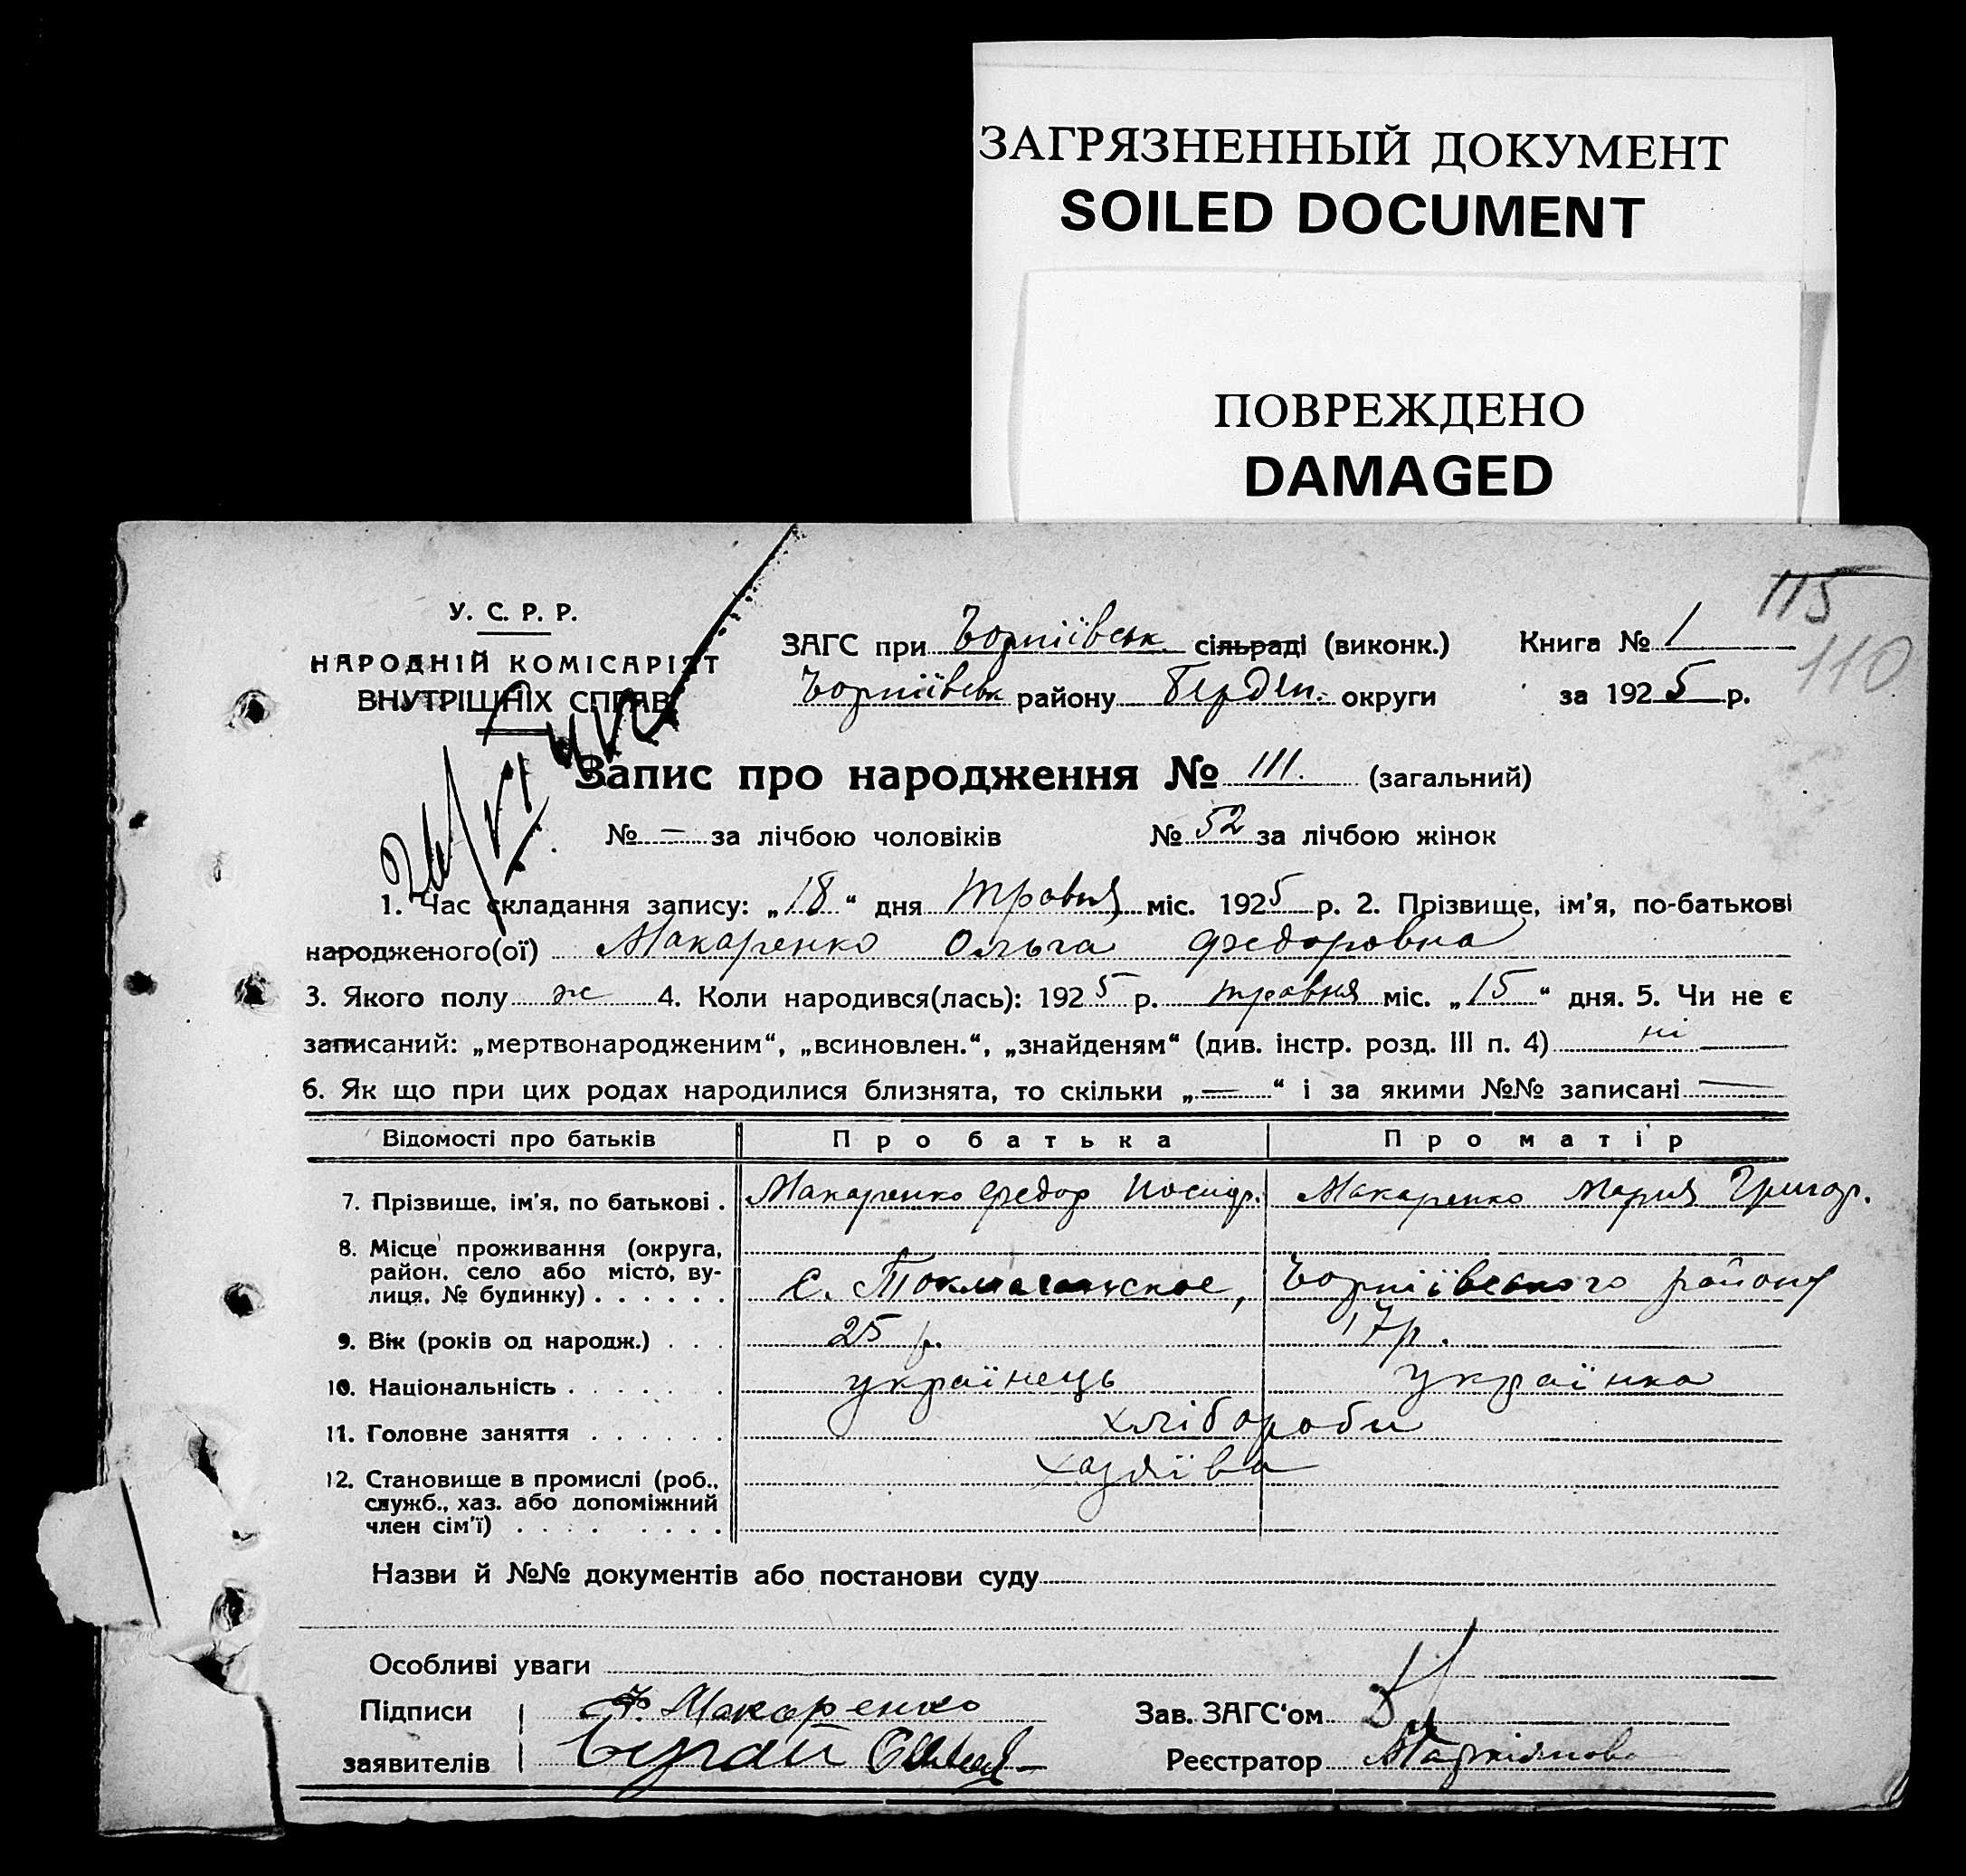 ЗАГРЯЗНЕННЫЙ ДОКУМЕНТ
SOILED DOCUMENT
ПОВРЕЖДЕНО
DAMAGED
115
110
У. С. Р. Р.
НАРОДНІЙ КОМІСАРІЯТ
ВНУТРІШНІХ СПРАВ
ЗАГС при Чорніївськ. сільраді (виконк.) Книга № 1
Чорніївськ району Бердян. округи за 1925 р.
Запис про народження № 111. (загальний)
№ — за лічбою чоловіків № 52 за лічбою жінок
1. Час складання запису: „18“ дня Травня міс. 1925 р. 2. Прізвище, ім'я, по-батькові
народженого(ої) Макаренко Ольга Федоровна
3. Якого полу ж 4. Коли народився(лась): 1925 р. травня міс. „15“ дня. 5. Чи не є
записаний: „мертвонародженим“, „всиновлен.“, „знайденям“ (див. інстр. розд. III п. 4) ні
6. Як що при цих родах народилися близнята, то скільки „—“ і за якими №№ записані —
Відомості про батьків Про батька Про матір
7. Прізвище, ім'я, по батькові . Макаренко Федор Иосиф. Макаренко Мария Григор.
8. Місце проживання (округа,
район, село або місто, ву-
лиця, № будинку) . . . . . . с. Токмачанское, Чорніївського району
9. Вік (років од народж.) . . . 25 р. 17 р.
10. Національність . . . . . . українець українка
11. Головне заняття . . . . . . хлібороби
12. Становище в промислі (роб., хазяїва
служб., хаз. або допоміжний
член сім'ї) . . . . . . . .
Назви й №№ документів або постанови суду
Особливі уваги
Підписи Ф. Макаренко Зав. ЗАГС'ом
заявителів Реєстратор